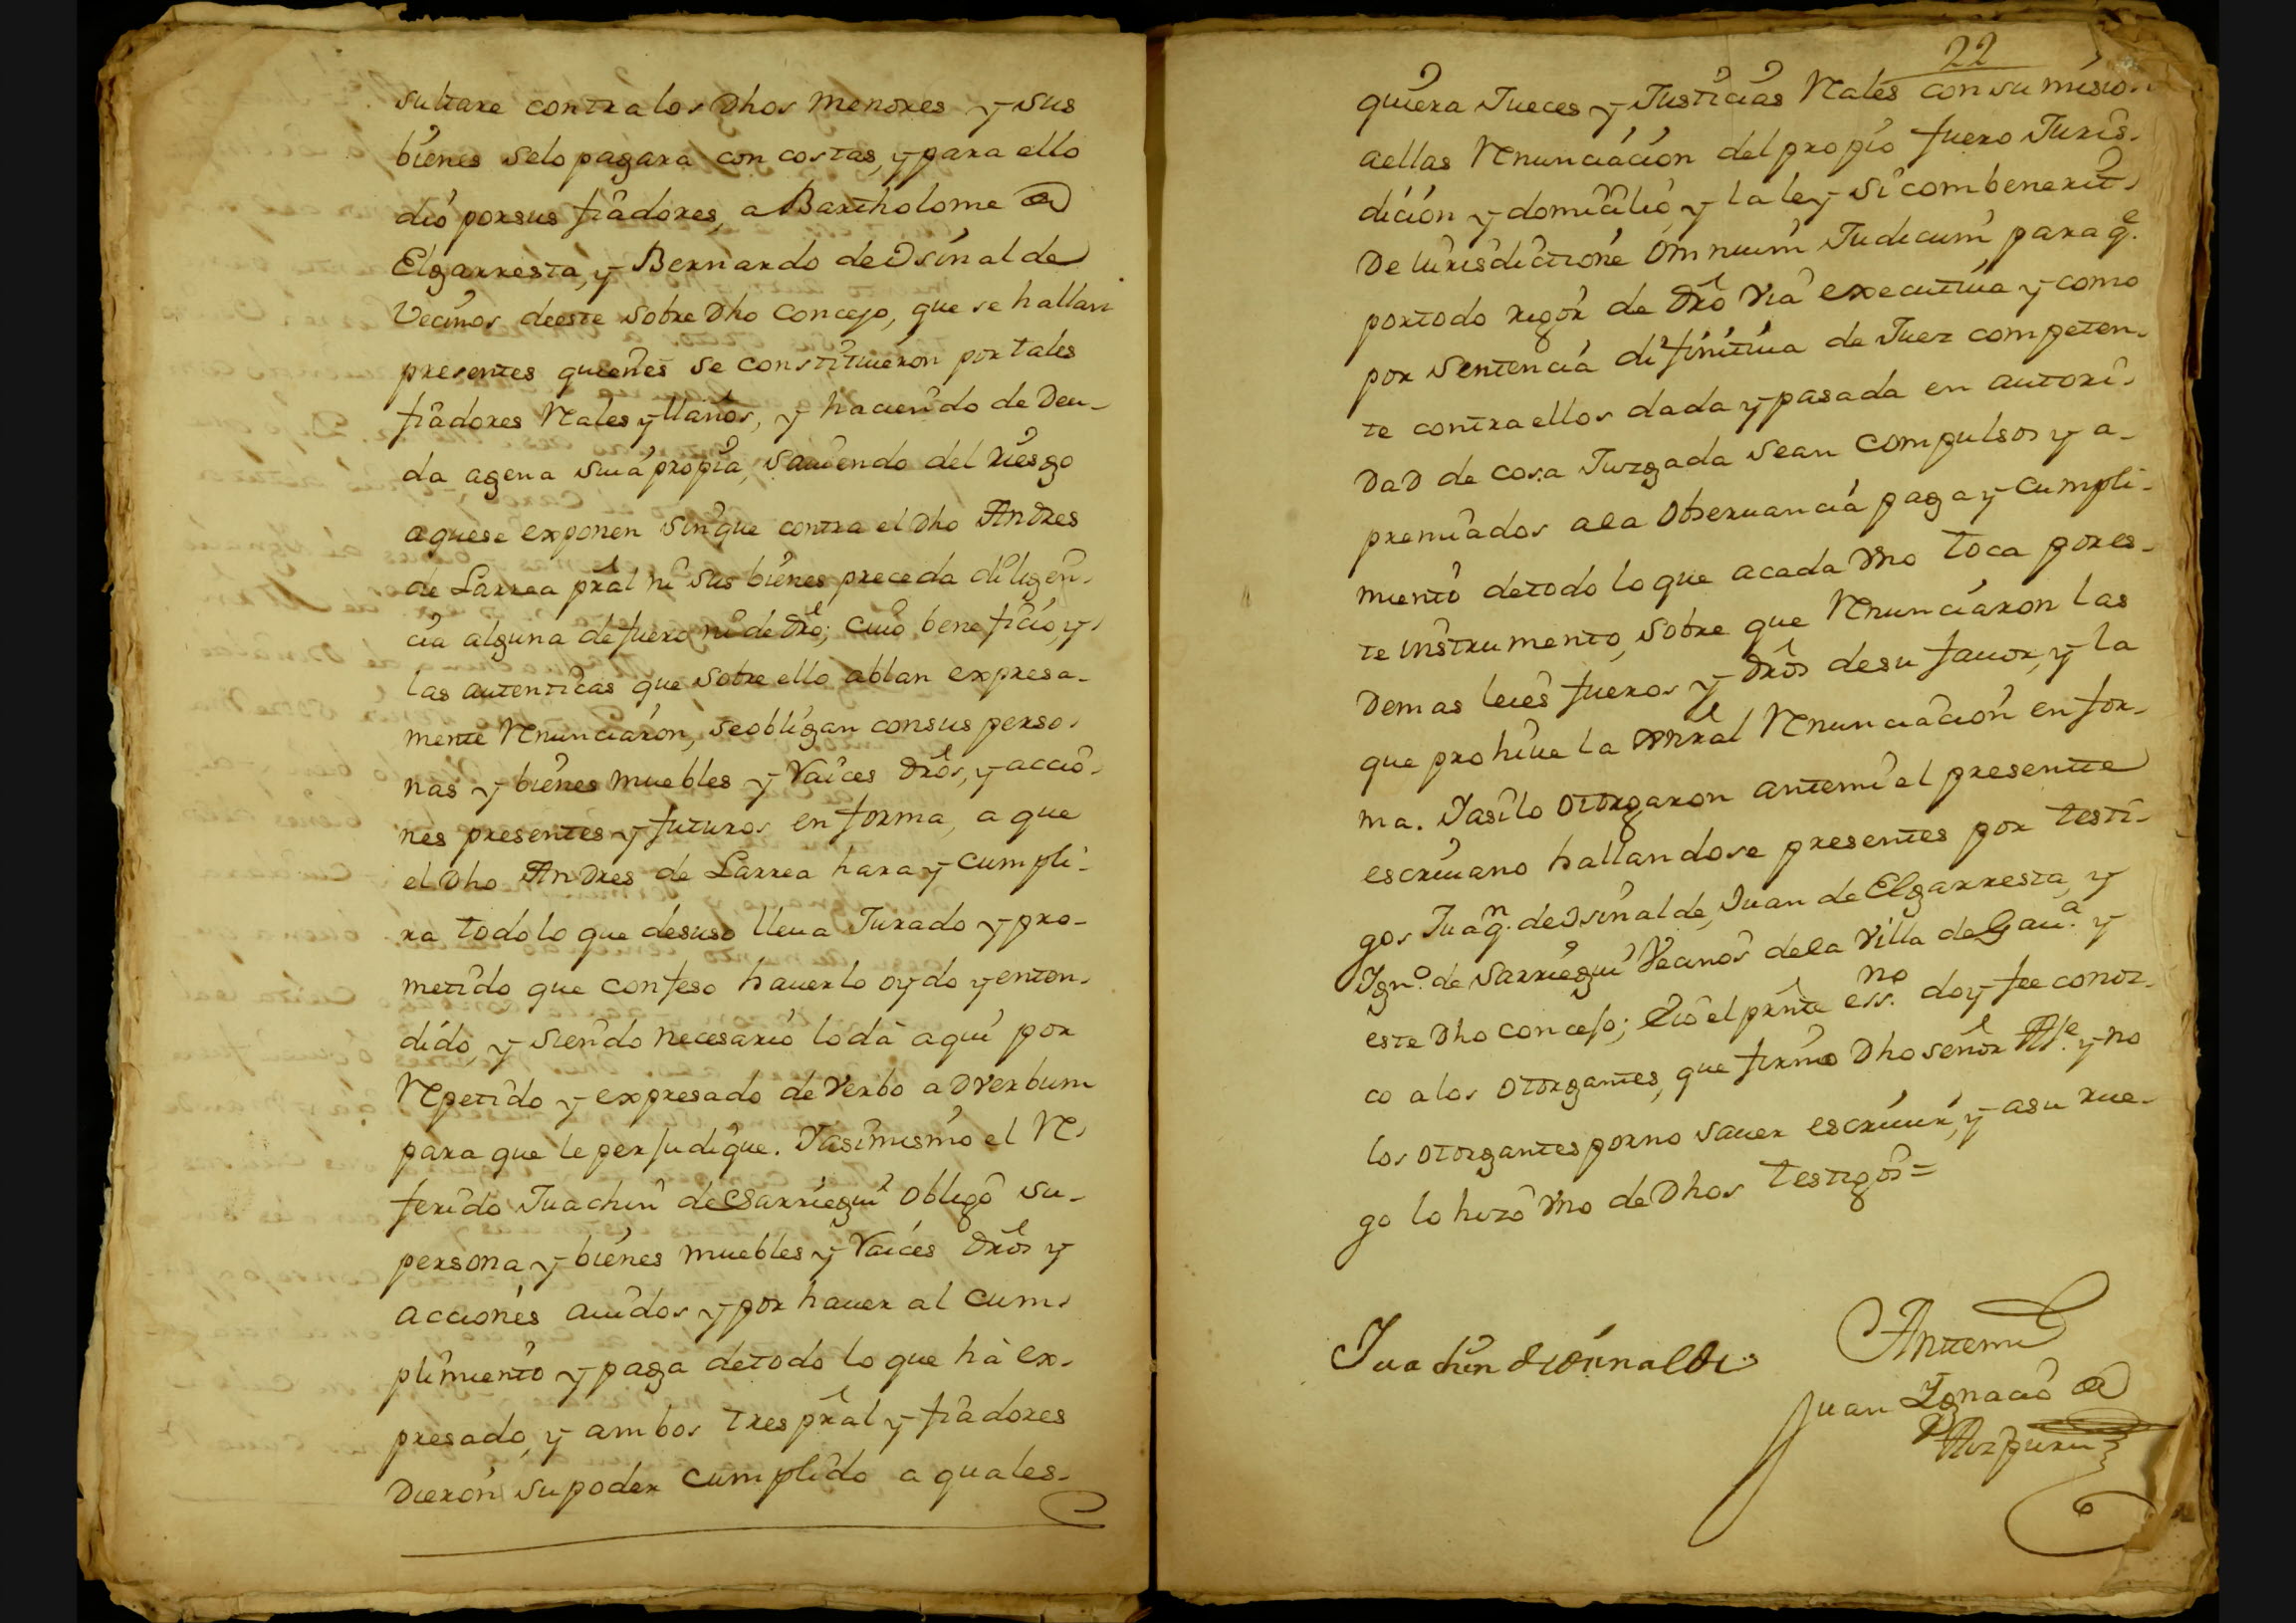 sultare contra los Dhos menores y sus
bienes selo pagara con costas, y para ello
dio por sus fiadores, a Bartholome de
Elgarresta, y Bernardo de Ysinalde
Vecinos deeste sobre Dho Concejo, que se hallan
presentes quienes se constituieron por tales
fiadores Rales y llanos, y haciendo de Deu-
da agena suia propia, saviendo del riesgo
aquese exponen sin que contra el Dho Andres
de Larrea pral ni sus bienes preceda diligen-
cia alguna de fuero ni de dro; cuio beneficio, y
las autenticas que sobre ello ablan expresa-
mente Renunciaron, se obligan con sus perso-
nas y bienes muebles y Raices dros, y accio-
nes presentes y futuros en forma, a que
el Dho Andres de Larrea hara y cumpli-
ra todo lo que desuso lleva Jurado y pro-
metido que confeso haverlo oydo y enten-
dido, y siendo necesario lo dà aqui por
Repetido y expresado de Verbo ad Verbum
para que le perjudique. Yasimismo el Re-
ferido Juachin de Sarriegui obligo su-
persona y bienes muebles y Raices dros y
acciones avidos y por haver al cum-
plimiento y paga detodo lo que hà ex-
presado, y ambos tres pral y fiadores
Dieron su poder cumplido a quales-
22
quiera Jueces y Justicias Rales con su mision
aellas Renunciacion del propio fuero Juris-
dicion y domicilio, y la ley si combenerit
De Iurisdictione Omnium Judicum para q.e
por todo rigor de dro via executiva y como
por sentencia difinitiva de Juez competen-
te contra ellos dada y pasada en autori-
Dad de cosa Juzgada sean compulsos y a-
premiados ala observancia paga y cumpli-
miento detodo lo que acada vno toca por es-
te instrumento, sobre que Renunciaron las
Demas leies fueros y dros desu favor, y la
que prohive la gnral Renunciacion en for-
ma. Yasilo otorgaron antemi el presente
escrivano hallandose presentes por testi-
gos Juaq.n de Ysinalde, Juan de Elgarresta, y
Ign.o de Sarriegui Vecinos dela Villa de Gav.a y
este Dho concejo; e Io el prnte ess.no doy fee conoz-
co alos otorgantes, que firmo Dho señor Al.e y no
los otorgantes por no saver escrivir, y asu rue-
go lo hizo vno de Dhos testigos=
Juachin de Ysinalde
Antemi
Juan Ignacio de
Aizpuru